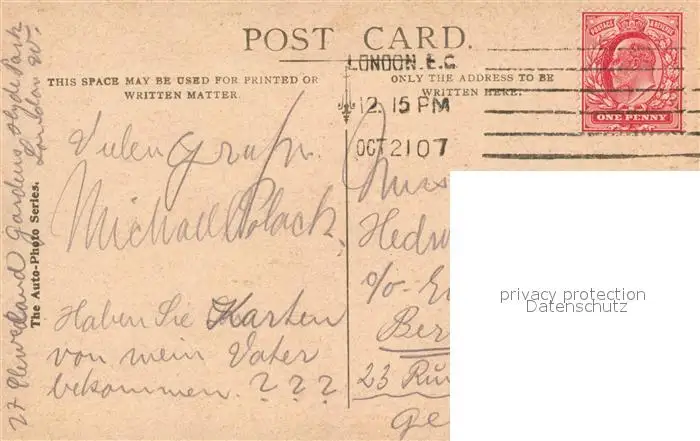 POST CARD.
THIS SPACE MAY BE USED FOR PRINTED OR
WRITTEN MATTER.
ONLY THE ADDRESS TO BE
WRITTEN HERE.
LONDON. E.C.
12. 15 PM
OCT 21 07
POSTAGE & REVENUE
ONE PENNY
Vielen
Michael Polack.
Haben Sie Karten
von mein Vater
bekommen. ? ? ?
Miss
Hedw
c/o
Ber
23
Ge
privacy protection
Datenschutz
The Auto-Photo Series.
27 Gardens Hyde Park
London W.